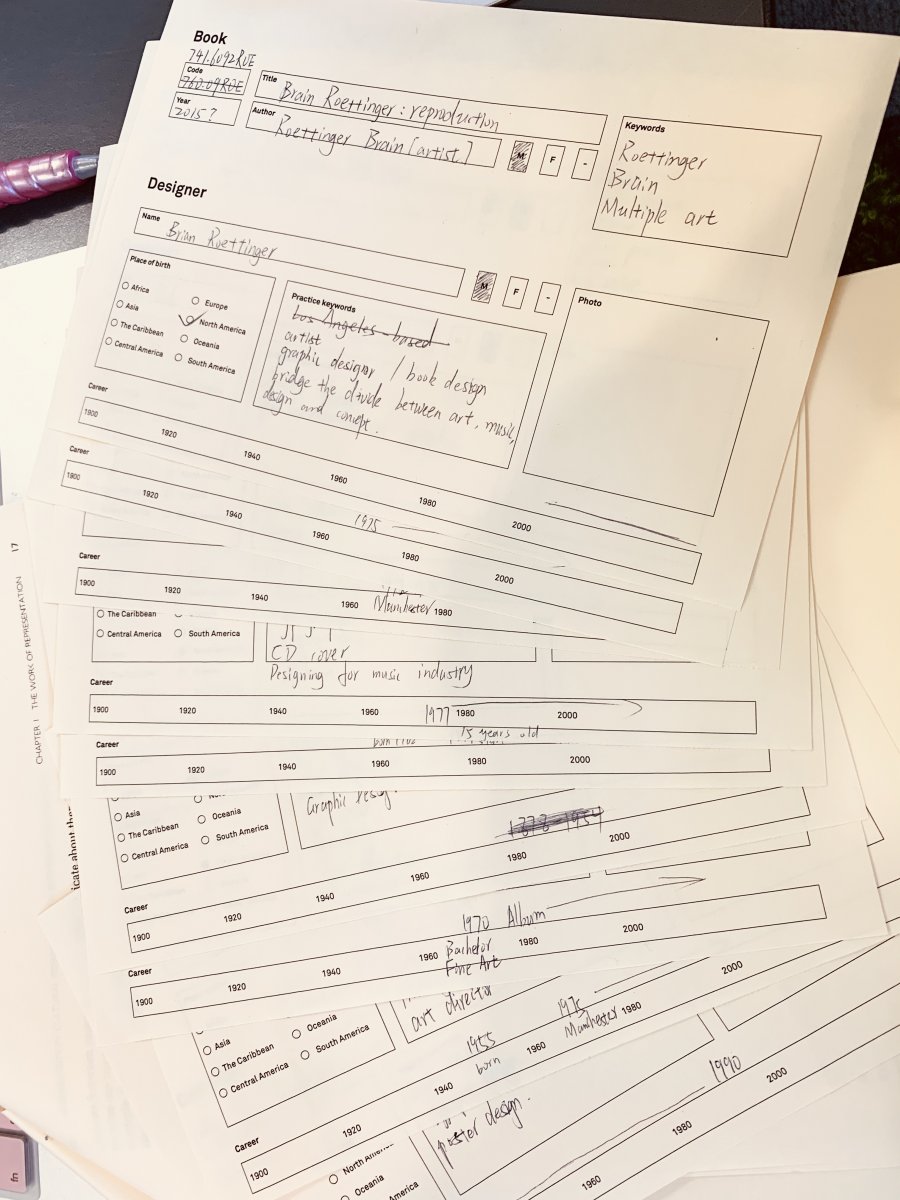 Book
741.6092RUE
Code
760.09ROE
Title
Brain Roettinger : reproduction
Year
2015?
Author
Roettinger Brain [artist.]
M F -
Keywords
Roettinger
Brain
Multiple art
Designer
Name
Brian Roettinger
M F -
Place of birth
Africa
Europe
Asia
North America
The Caribbean
Oceania
Central America
South America
Practice keywords
Los Angeles-based
artist
graphic designer / book design
bridge the divide between art, music,
design and concept.
Photo
Career
1900 1920 1940 1960 1980 2000
Career
1975
1900 1920 1940 1960 1980 2000
Career
1900 1920 1940 1960 Manchester 1980
The Caribbean
Central America South America
CD cover
Designing for music industry
Career
1900 1920 1940 1960 1977 1980 2000
15 years old
Career
born
1900 1920 1940 1960 1980 2000
Asia
Oceania
The Caribbean
South America
Central America
Graphic Desig
Career
1900 1920 1940 1960 1980 2000
1970 Album
Career
1900 1920 1940 1960 1980 2000
Bachelor
Fine Art
art director
Asia
Oceania
The Caribbean
South America
Central America
1955
born
1975
Manchester
Career
1900 1920 1940 1960 1980 2000
poster design.
1990
North America
Oceania
America
1960 1980 2000
CHAPTER 1 THE WORK OF REPRESENTATION 17
icate about the
fn